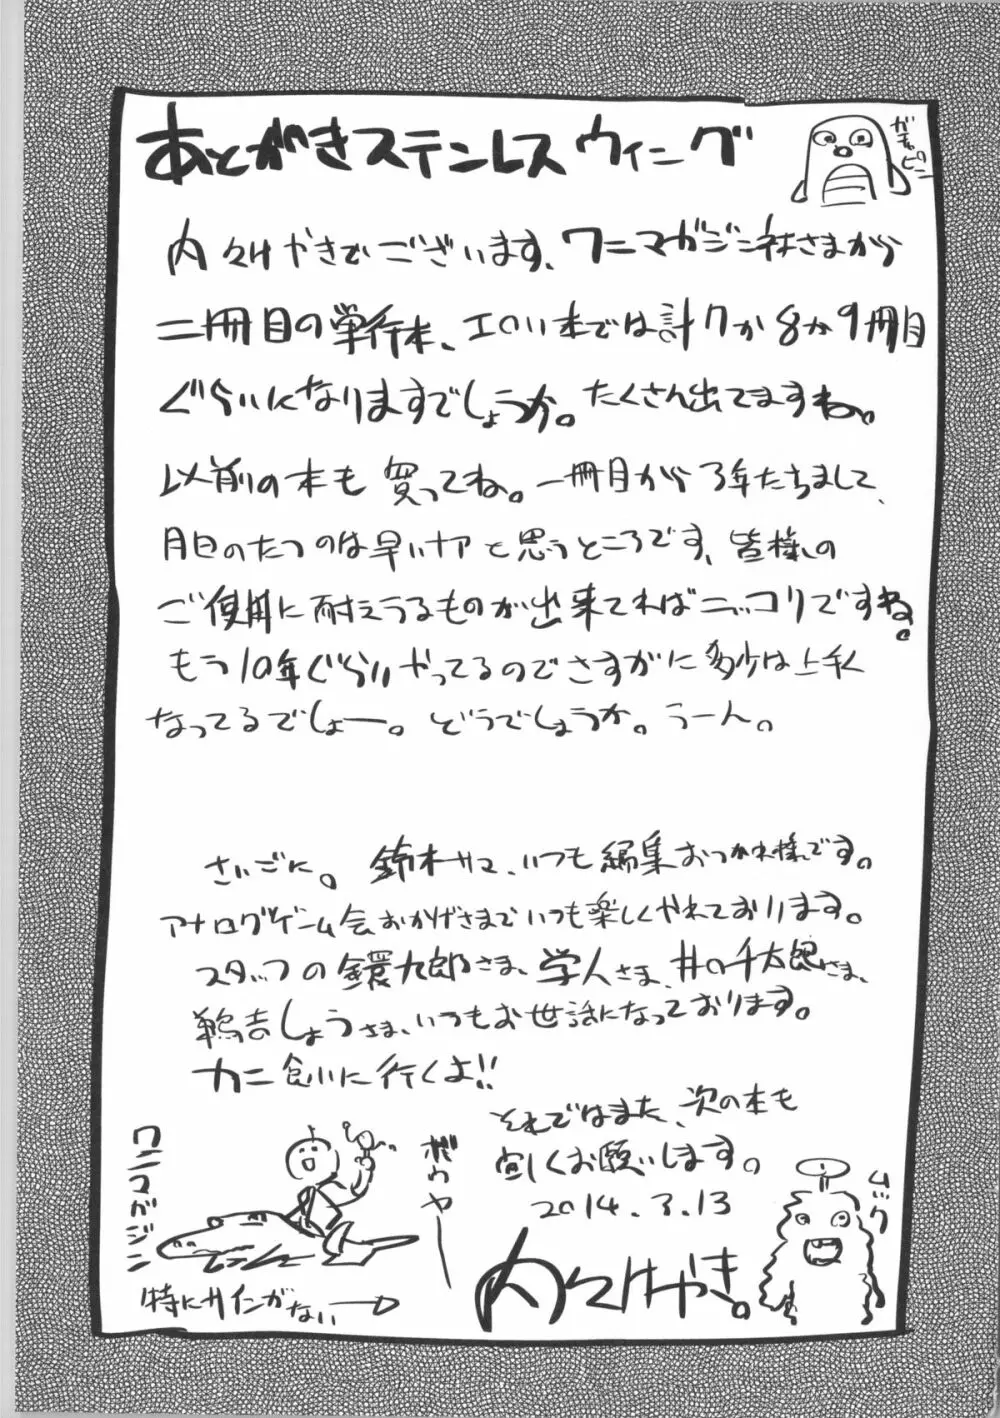 あとがきステンレスウィーニグ
ガチャピン
内々けやきでございます、ワニマガジン社さまから
二冊目の単行本、エロい本では計7か8か9冊目
ぐらいになりますでしょうか。たくさん出てますね。
以前の本も買ってね。一冊目から3年たちまして、
月日のたつのは早いナアと思うところです、皆様の
ご使用に耐えうるものが出来てればニッコリですね。
もう10年ぐらいやってるのでさすがに多少は上手く
なってるでしょー。どうでしょうか。うーん。
さいごに。鈴木サマ、いつも編集おつかれ様です。
アナログゲーム会おかげさまでいつも楽しくやれております。
スタッフの鐶九郎さま、学人さま、井の千太郎さま、
鵺吉しょうさま、いつもお世話になっております。
カニ食いに行くよ!!
それではまた、次の本も
宜しくお願いします。
2014.3.13
内々けやき。
ワニマガジン
ボウヤー
ムック
特にサインがない→